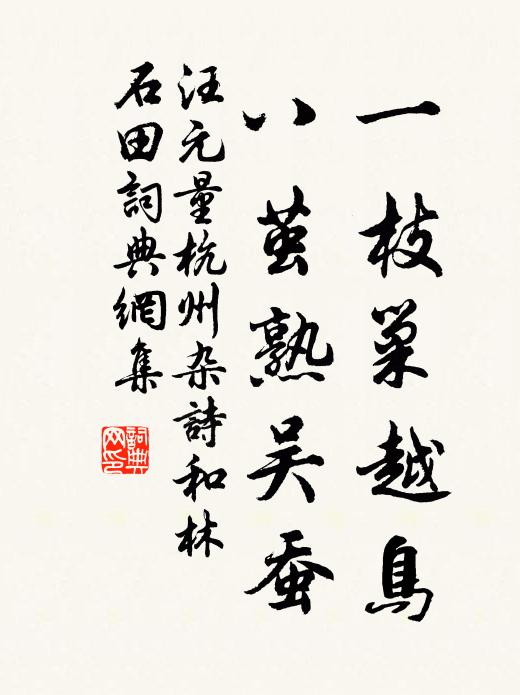 一枝巢越鳥
八茧熟吴蚕
汪元量杭州杂詩和林
石田詞典網集
詞典网印